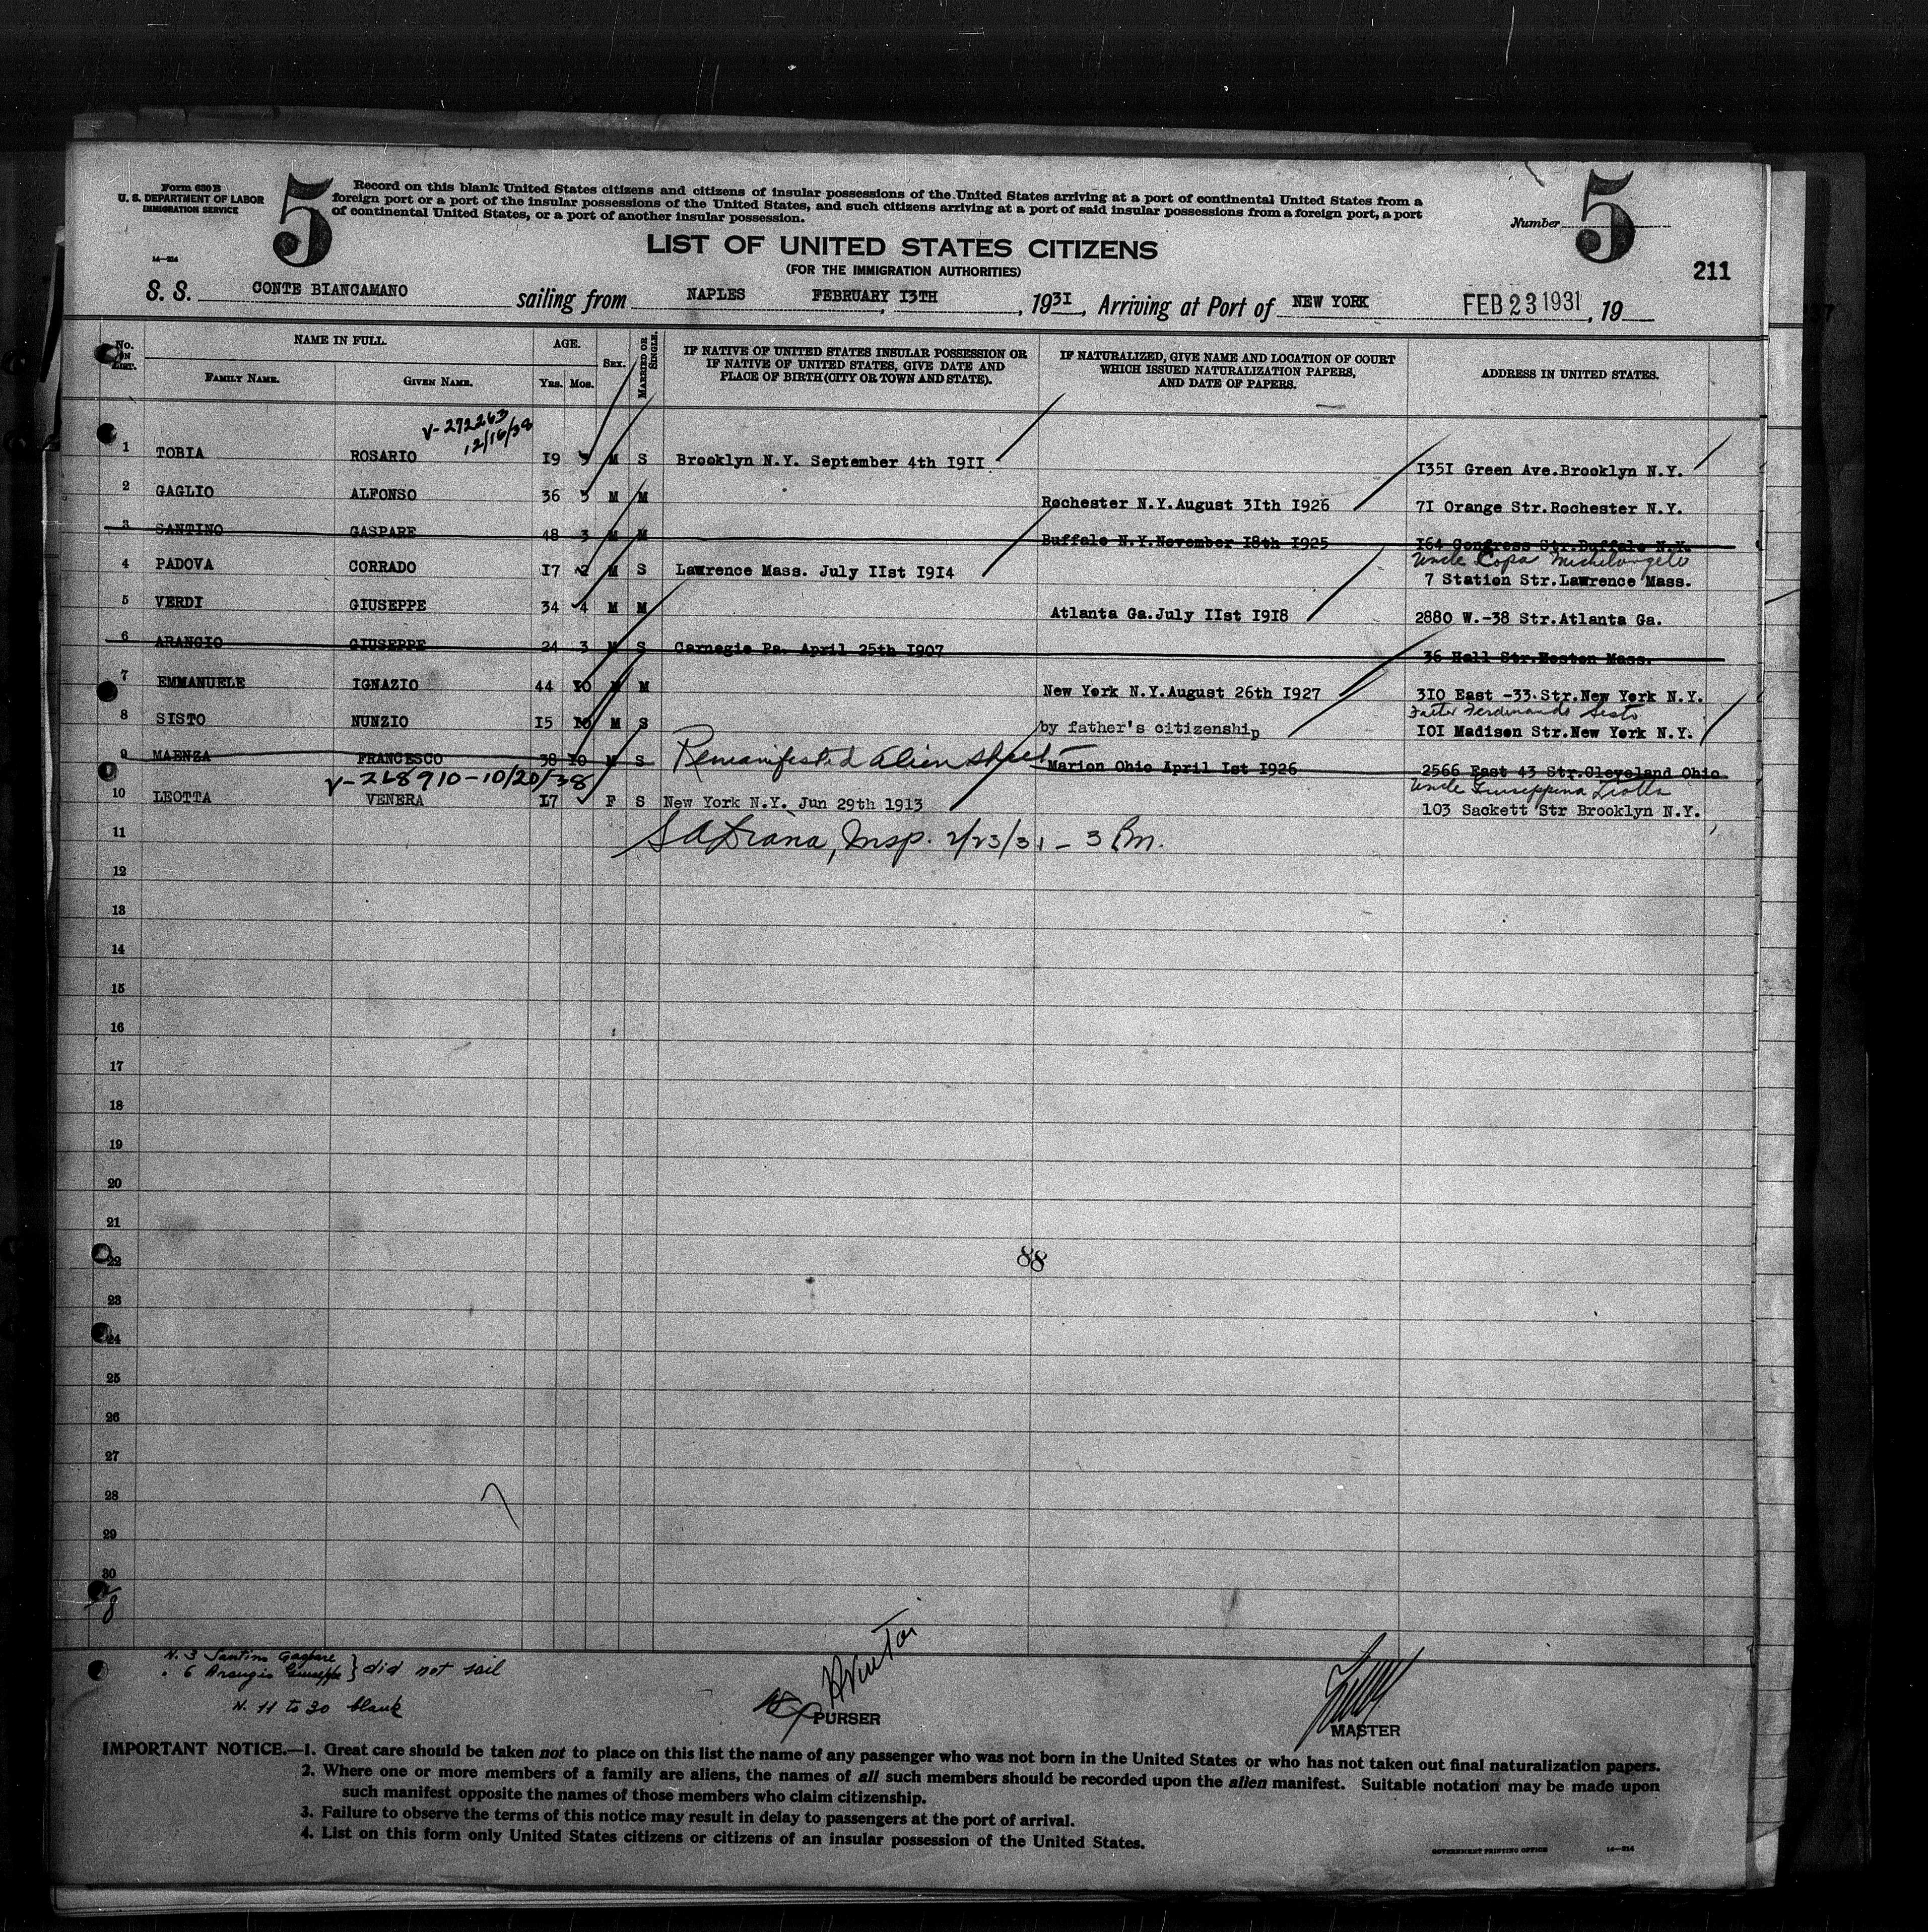 Form 630 B
U. S. DEPARTMENT OF LABOR
IMMIGRATION SERVICE
14—214
5
Record on this blank United States citizens and citizens of insular possessions of the United States arriving at a port of continental United States from a
foreign port or a port of the insular possessions of the United States, and such citizens arriving at a port of said insular possessions from a foreign port, a port
of continental United States, or a port of another insular possession.
Number 5
LIST OF UNITED STATES CITIZENS
(FOR THE IMMIGRATION AUTHORITIES)
211
S. S. CONTE BIANCAMANO sailing from NAPLES, FEBRUARY I3TH, 193I, Arriving at Port of NEW YORK FEB 23 1931, 19
No. IN LIST. NAME IN FULL. AGE. SEX. MARRIED OR SINGLE. IF NATIVE OF UNITED STATES INSULAR POSSESSION OR IF NATIVE OF UNITED STATES, GIVE DATE AND PLACE OF BIRTH (CITY OR TOWN AND STATE). IF NATURALIZED, GIVE NAME AND LOCATION OF COURT WHICH ISSUED NATURALIZATION PAPERS, AND DATE OF PAPERS. ADDRESS IN UNITED STATES.
FAMILY NAME. GIVEN NAME. YRS. MOS.
V-272263
12/16/38
1 TOBIA ROSARIO I9 5 M S Brooklyn N.Y. September 4th I9II I35I Green Ave.Brooklyn N.Y.
2 GAGLIO ALFONSO 36 5 M M Rochester N.Y.August 3Ith I926 7I Orange Str.Rochester N.Y.
3 SANTINO GASPARE 48 3 M M Buffalo N.Y.November I8th I925 I64 Congress Str.Buffalo N.Y.
Uncle Copa Michelangelo
4 PADOVA CORRADO I7 2 M S Lawrence Mass. July IIst I9I4 7 Station Str.Lawrence Mass.
5 VERDI GIUSEPPE 34 4 M M Atlanta Ga.July IIst I9I8 2880 W.-38 Str.Atlanta Ga.
6 ARANGIO GIUSEPPE 24 3 M S Carnegie Pa. April 25th I907 36 Hall Str.Moston Mass.
7 EMMANUELE IGNAZIO 44 I0 M M New York N.Y.August 26th I927 3I0 East -33.Str.New York N.Y.
Ferdinando Sisto
8 SISTO NUNZIO I5 I0 M S by father's citizenship I0I Madison Str.New York N.Y.
9 MAENZA FRANCESCO 38 I0 M S Remanifested alien sheet Marion Ohio April Ist I926 2566 East 43 Str.Cleveland Ohio
V-268910-10/20/38
Uncle Giuseppina Liotta
10 LEOTTA VENERA I7 F S New York N.Y. Jun 29th 1913 103 Sackett Str Brooklyn N.Y.
11 Insp. 2/23/31 - 3 Pm.
12
13
14
15
16
17
18
19
20
21
22
88
23
24
25
26
27
28
29
30
8
N. 3 Santino Gaspare
" 6 Arangio Giuseppe } did not sail
N. 11 to 30 blank
PURSER
MASTER
IMPORTANT NOTICE.—1. Great care should be taken not to place on this list the name of any passenger who was not born in the United States or who has not taken out final naturalization papers.
2. Where one or more members of a family are aliens, the names of all such members should be recorded upon the alien manifest. Suitable notation may be made upon
such manifest opposite the names of those members who claim citizenship.
3. Failure to observe the terms of this notice may result in delay to passengers at the port of arrival.
4. List on this form only United States citizens or citizens of an insular possession of the United States.
GOVERNMENT PRINTING OFFICE 14—214